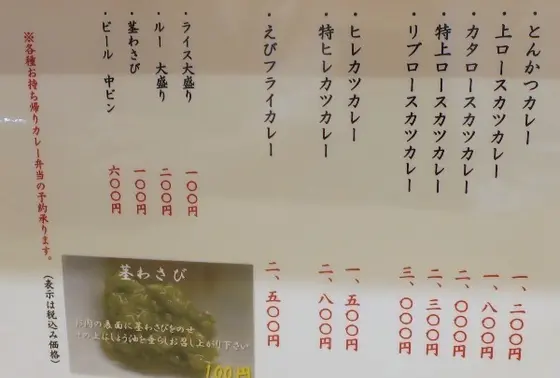 ・とんかつカレー 一、二〇〇円
・上ロースカツカレー 一、八〇〇円
・カタロースカツカレー 二、〇〇〇円
・特上ロースカツカレー 二、三〇〇円
・リブロースカツカレー 三、〇〇〇円
・ヒレカツカレー 一、五〇〇円
・特ヒレカツカレー 二、八〇〇円
・えびフライカレー 二、五〇〇円
・ライス大盛り 一〇〇円
・ルー 大盛り 二〇〇円
・茎わさび 一〇〇円
・ビール 中ビン 六〇〇円
※各種お持ち帰りカレー弁当の予約承ります。
(表示は税込み価格)
茎わさび
お肉の表面に茎わさびをのせ
その上にしょう油を垂らしお召し上がり下さい
100円